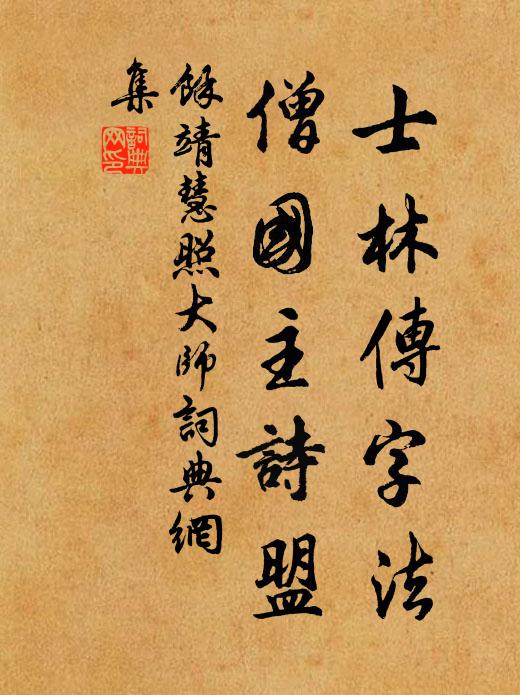 士林傳字法
僧國主詩盟
餘靖慧照大師詞典網
集
詞典
網印